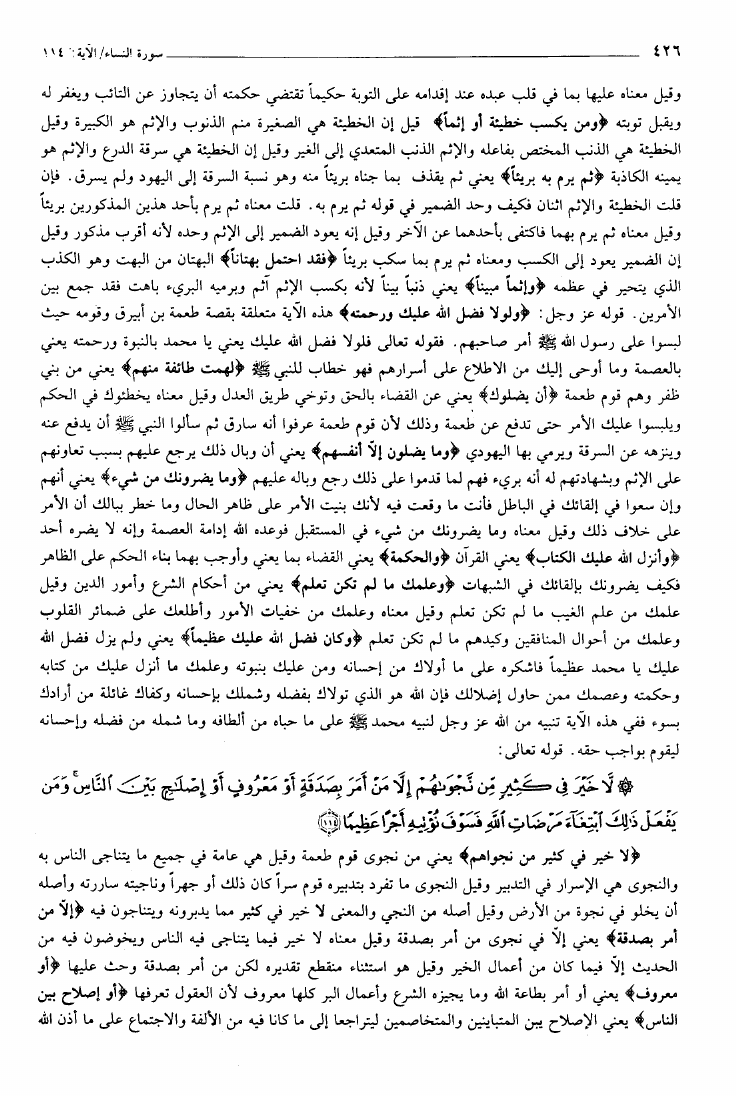 ٤٢٦ سورة النساء/ الآية: ١١٤
وقيل معناه عليها بما في قلب عبده عند إقدامه على التوبة حكيماً تقتضي حكمته أن يتجاوز عن التائب ويغفر له
ويقبل توبته ﴿ومن يكسب خطيئة أو إثماً﴾ قيل إن الخطيئة هي الصغيرة منم الذنوب والإثم هو الكبيرة وقيل
الخطيئة هي الذنب المختص بفاعله والإثم الذنب المتعدي إلى الغير وقيل إن الخطيئة هي سرقة الدرع والإثم هو
يمينه الكاذبة ﴿ثم يرم به بريئاً﴾ يعني ثم يقذف بما جناه بريئاً منه وهو نسبة السرقة إلى اليهود ولم يسرق. فإن
قلت الخطيئة والإثم اثنان فكيف وحد الضمير في قوله ثم يرم به. قلت معناه ثم يرم بأحد هذين المذكورين بريئاً
وقيل معناه ثم يرم بهما فاكتفى بأحدهما عن الآخر وقيل إنه يعود الضمير إلى الإثم وحده لأنه أقرب مذكور وقيل
إن الضمير يعود إلى الكسب ومعناه ثم يرم بما سكب بريئاً ﴿فقد احتمل بهتاناً﴾ البهتان من البهت وهو الكذب
الذي يتحير في عظمه ﴿وإثماً مبيناً﴾ يعني ذنباً بيناً لأنه بكسب الإثم آثم وبرميه البريء باهت فقد جمع بين
الأمرين. قوله عز وجل: ﴿ولولا فضل الله عليك ورحمته﴾ هذه الآية متعلقة بقصة طعمة بن أبيرق وقومه حيث
لبسوا على رسول الله ﷺ أمر صاحبهم. فقوله تعالى فلولا فضل الله عليك يعني يا محمد بالنبوة ورحمته يعني
بالعصمة وما أوحى إليك من الاطلاع على أسرارهم فهو خطاب للنبي ﷺ ﴿لهمت طائفة منهم﴾ يعني من بني
ظفر وهم قوم طعمة ﴿أن يضلوك﴾ يعني عن القضاء بالحق وتوخي طريق العدل وقيل معناه يخطئوك في الحكم
ويلبسوا عليك الأمر حتى تدفع عن طعمة وذلك لأن قوم طعمة عرفوا أنه سارق ثم سألوا النبي ﷺ أن يدفع عنه
وينزهه عن السرقة ويرمي بها اليهودي ﴿وما يضلون إلّا أنفسهم﴾ يعني أن وبال ذلك يرجع عليهم بسبب تعاونهم
على الإثم وبشهادتهم له أنه بريء فهم لما قدموا على ذلك رجع وباله عليهم ﴿وما يضرونك من شيء﴾ يعني أنهم
وإن سعوا في إلقائك في الباطل فأنت ما وقعت فيه لأنك بنيت الأمر على ظاهر الحال وما خطر ببالك أن الأمر
على خلاف ذلك وقيل معناه وما يضرونك من شيء في المستقبل فوعده الله إدامة العصمة وإنه لا يضره أحد
﴿وأنزل الله عليك الكتاب﴾ يعني القرآن ﴿والحكمة﴾ يعني القضاء بما يعني وأوجب بهما بناء الحكم على الظاهر
فكيف يضرونك بإلقائك في الشبهات ﴿وعلمك ما لم تكن تعلم﴾ يعني من أحكام الشرع وأمور الدين وقيل
علمك من علم الغيب ما لم تكن تعلم وقيل معناه وعلمك من خفيات الأمور وأطلعك على ضمائر القلوب
وعلمك من أحوال المنافقين وكيدهم ما لم تكن تعلم ﴿وكان فضل الله عليك عظيماً﴾ يعني ولم يزل فضل الله
عليك يا محمد عظيماً فاشكره على ما أولاك من إحسانه ومن عليك بنبوته وعلمك ما أنزل عليك من كتابه
وحكمته وعصمك ممن حاول إضلالك فإن الله هو الذي تولاك بفضله وشملك بإحسانه وكفاك غائلة من أرادك
بسوء ففي هذه الآية تنبيه من الله عز وجل لنبيه محمد ﷺ على ما حباه من ألطافه وما شمله من فضله وإحسانه
ليقوم بواجب حقه. قوله تعالى:
۞ لَّا خَيْرَ فِى كَثِيرٍ مِّن نَّجْوَىٰهُمْ إِلَّا مَنْ أَمَرَ بِصَدَقَةٍ أَوْ مَعْرُوفٍ أَوْ إِصْلَٰحٍ بَيْنَ ٱلنَّاسِ ۚ وَمَن
يَفْعَلْ ذَٰلِكَ ٱبْتِغَآءَ مَرْضَاتِ ٱللَّهِ فَسَوْفَ نُؤْتِيهِ أَجْرًا عَظِيمًا ﴿١١٤﴾
﴿لا خير في كثير من نجواهم﴾ يعني من نجوى قوم طعمة وقيل هي عامة في جميع ما يتناجى الناس به
والنجوى هي الإسرار في التدبير وقيل النجوى ما تفرد بتدبيره قوم سراً كان ذلك أو جهراً وناجيته ساررته وأصله
أن يخلو في نجوة من الأرض وقيل أصله من النجي والمعنى لا خير في كثير مما يدبرونه ويتناجون فيه ﴿إلّا من
أمر بصدقة﴾ يعني إلّا في نجوى من أمر بصدقة وقيل معناه لا خير فيما يتناجى فيه الناس ويخوضون فيه من
الحديث إلّا فيما كان من أعمال الخير وقيل هو استثناء منقطع تقديره لكن من أمر بصدقة وحث عليها ﴿أو
معروف﴾ يعني أو أمر بطاعة الله وما يجيزه الشرع وأعمال البر كلها معروف لأن العقول تعرفها ﴿أو إصلاح بين
الناس﴾ يعني الإصلاح بين المتباينين والمتخاصمين ليتراجعا إلى ما كانا فيه من الألفة والاجتماع على ما أذن الله